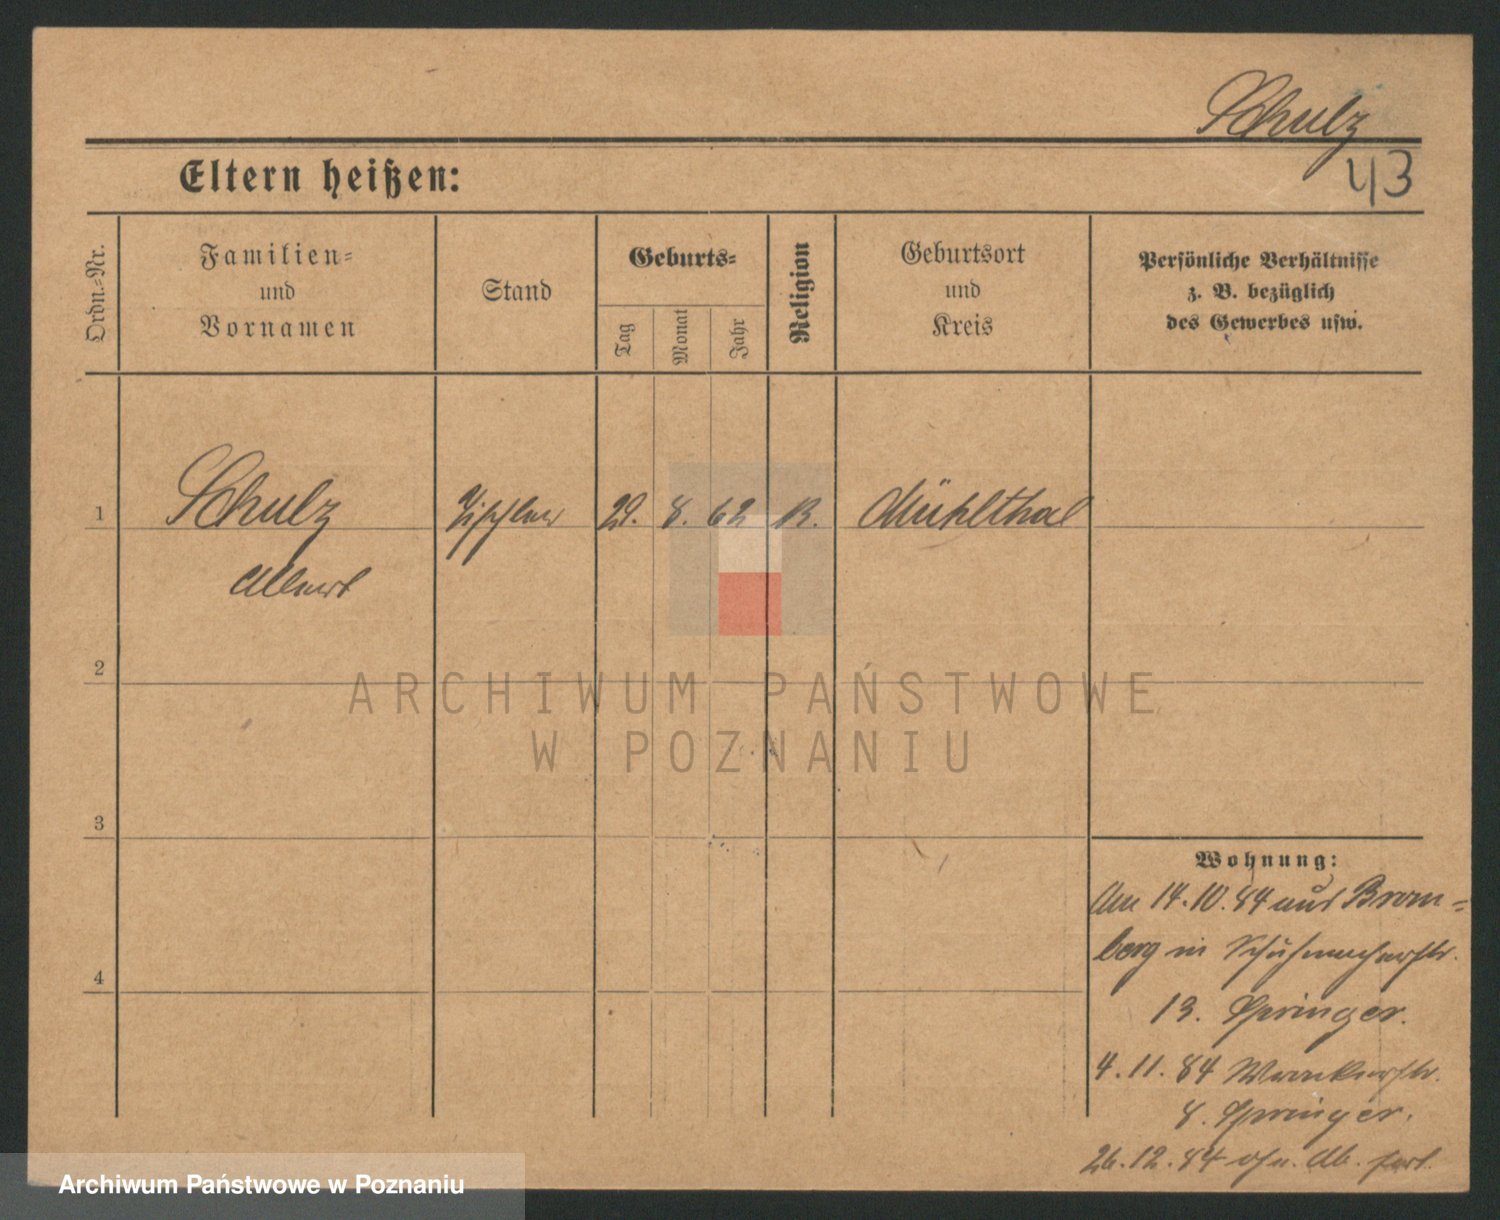 Schulz
43
Eltern heißen:
Ordn.-Nr.
Familien-
und
Vornamen
Stand
Geburts-
Tag
Monat
Jahr
Religion
Geburtsort
und
Kreis
Persönliche Verhältnisse
z. B. bezüglich
des Gewerbes usw.
1 Schulz Tischler 29. 8. 62 K. Mühlthal
Albert
2
ARCHIWUM PAŃSTWOWE
W POZNANIU
3
Wohnung:
Am 14.10.84 aus Brom-
berg in Schuhmacherstr.
13. Springer.
4
4.11.84 Wronkerstr.
8. Springer.
26.12.84 ohn. Ab. fort.
Archiwum Państwowe w Poznaniu